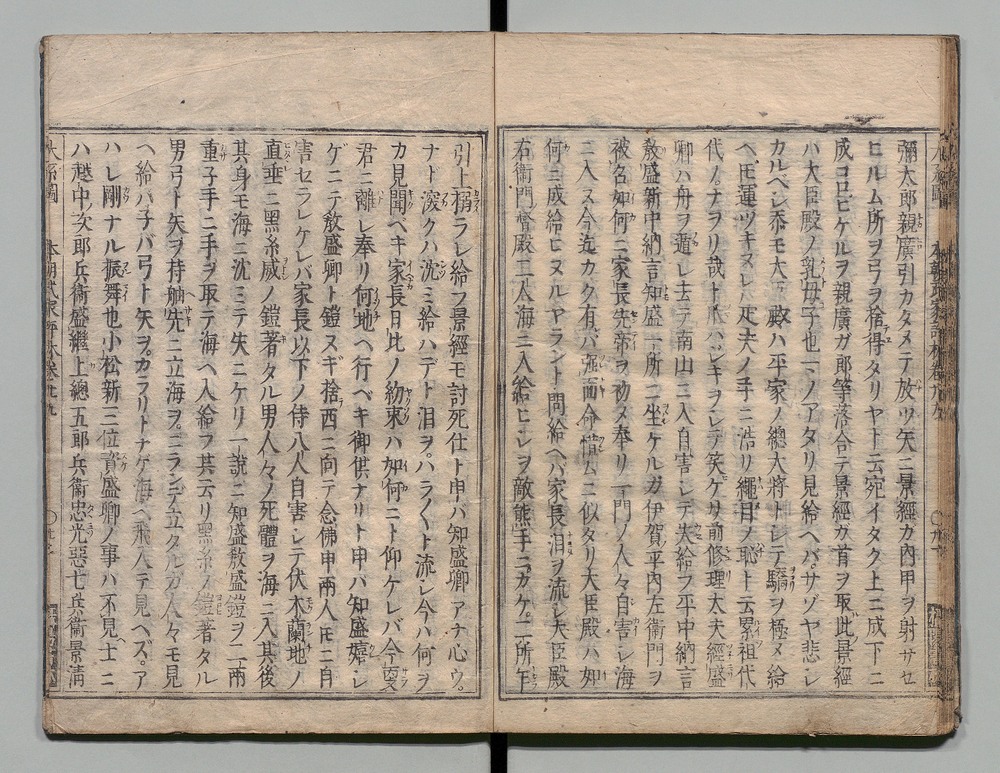 彌太郎親廣引カタメテ放ツ矢ニ景經カ内甲ヲ射サセ
ヒルム所ヲ弓ヲ捨得タリヤト云宛イタク上ニ成下ニ
成コロヒケルヲ親廣ガ郎等落合テ景經カ首ヲ取此景經
ハ大臣殿ノ乳母子也マノアタリ見給ヘバサゾヤ悲シ
カルベシ忝モ大臣殿ハ平家ノ總大將トシテ驕ヲ極メ給
ヘ𪜈運ツキヌレバ疋夫ノ手ニ浩リ繩目ノ恥ト云累祖代
代ノナヲリ哉ト爪ハシキヲシテ笑ケタ前修理太夫經盛
卿ハ舟ヲ遁レ去テ南山ニ入自害シテ失給フ平中納言
敎盛新中納言知盛一所ニ坐ケルガ伊賀平内左衞門ヲ
被名如何ニ家長先帝ヲ初メ奉リ一門ノ人々自害シ海
ニ入ヌ今迄カク有バ強面命惜ムニ似タリ大臣殿ハ如
何ニ成給ヒヌルヤラント問給ヘバ家長泪ヲ流シ大臣殿
右衞門督殿二人海ニ入給ヒシヲ敵熊手ニカケ二所乍
引上搦ラレ給フ景經モ討死仕ト申バ知盛卿アナ心ウ。
ナド深クハ沈ミ給ハデト泪ヲ。ハラ〱ト流シ今ハ何ヲ
カ見聞ベキ家長日比ノ約束ハ如何ニト仰ケレバ今更
君ニ離レ奉リ何地ヘ行ベキ御供ナリト申バ知盛嬉シ
ゲニテ敎盛卿ト鎧ヌギ捨西ニ向テ念佛申兩人𪜈ニ自
害セラレケレバ家長以下ノ侍八人自害シテ伏木蘭地ノ
直垂ニ黑糸威ノ鎧著タル男人々ノ死體ヲ海ニ入其後
其身モ海ニ沈ミテ失ニケリ一說ニ知盛敎盛鎧ヲ二兩
重子手ニ手ヲ取テ海ヘ入給フ其云リ黑糸ノ鎧著タル
男弓ト矢ヲ持舳先ニ立海ヲ。ニランデ立タルガ人々モ見
ヘ給バ子バ弓ト矢ヲ。カラリトナゲ海ヘ飛入テ見ヘズ。ア
ハレ剛ナル振舞也小松新三位資盛卿ノ事ハ不見士ニ
ハ越中次郎兵衞盛繼上總五郎兵衞忠光惡七兵衞景淸